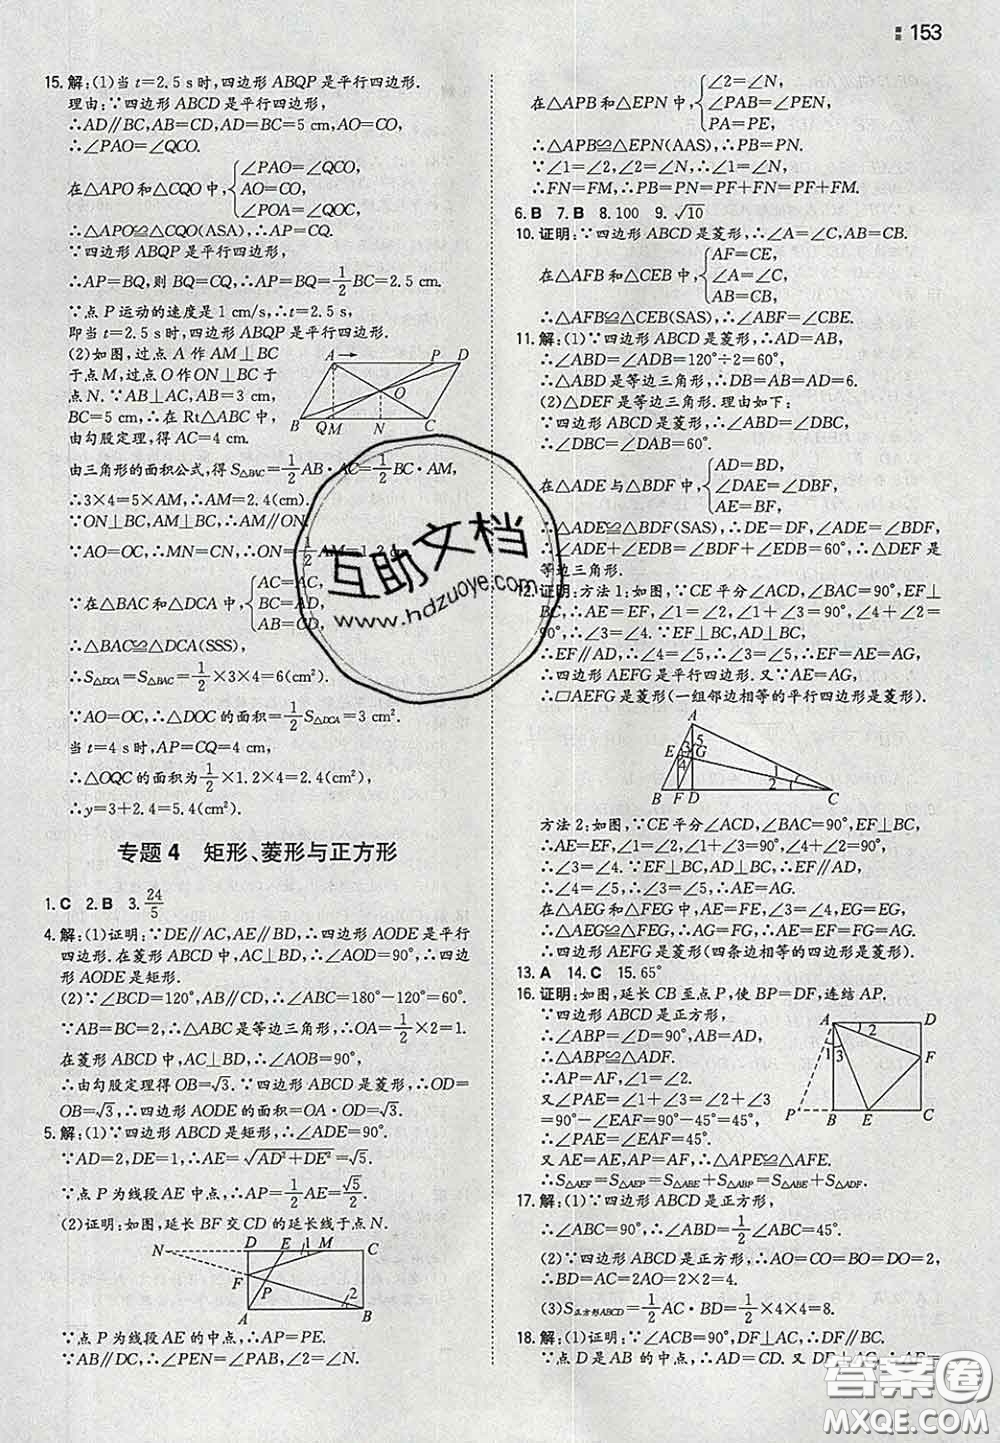 153
15.解:(1)当 t=2.5 s时,四边形 ABQP 是平行四边形.
理由:∵四边形 ABCD 是平行四边形,
∴AD∥BC,AB=CD,AD=BC=5 cm,AO=CO,
∴∠PAO=∠QCO.
在△APO 和△CQO 中,{∠PAO=∠QCO,
AO=CO,
∠POA=∠QOC,
∴△APO≌△CQO(ASA).∴AP=CQ.
∵四边形 ABQP 是平行四边形,
∴AP=BQ,则 BQ=CQ,∴AP=BQ=1/2BC=2.5 cm.
∵点 P 运动的速度是 1 cm/s,∴t=2.5 s,
即当 t=2.5 s时,四边形 ABQP 是平行四边形.
(2)如图,过点 A 作 AM⊥BC
于点 M,过点 O 作 ON⊥BC 于
点 N.∵AB⊥AC,AB=3 cm,
BC=5 cm,∴在 Rt△ABC 中,
由勾股定理,得 AC=4 cm.
A P D
O
B Q M N C
由三角形的面积公式,得 S△BAC=1/2AB·AC=1/2BC·AM,
∴3×4=5×AM,∴AM=2.4(cm).
∵ON⊥BC,AM⊥BC,∴AM∥ON.
∵AO=OC,∴MN=CN,∴ON=1/2AM=1.2
∵在△BAC 和△DCA 中,{AC=AC,
BC=AD,
AB=CD,
∴△BAC≌△DCA(SSS),
∴S△DCA=S△BAC=1/2×3×4=6(cm²).
∵AO=OC,∴△DOC 的面积=1/2S△DCA=3 cm².
当 t=4 s时,AP=CQ=4 cm,
∴△OQC 的面积为1/2×1.2×4=2.4(cm²),
∴y=3+2.4=5.4(cm²).
专题 4 矩形、菱形与正方形
1.C 2.B 3.24/5
4.解:(1)证明:∵DE∥AC,AE∥BD,∴四边形 AODE 是平行
四边形.在菱形 ABCD 中,AC⊥BD,∴∠AOD=90°,∴四边
形 AODE 是矩形.
(2)∵∠BCD=120°,AB∥CD,∴∠ABC=180°-120°=60°.
∵AB=BC=2,∴△ABC 是等边三角形,∴OA=1/2×2=1.
在菱形 ABCD 中,AC⊥BD,∴∠AOB=90°,
∴由勾股定理得 OB=√3.∵四边形 ABCD 是菱形,∴OD=
OB=√3,∴四边形 AODE 的面积=OA·OD=√3.
5.解:(1)∵四边形 ABCD 是矩形,∴∠ADE=90°.
∵AD=2,DE=1,∴AE=√(AD²+DE²)=√5.
∵点 P 为线段 AE 中点,∴AP=1/2AE=√5/2.
(2)证明:如图,延长 BF 交 CD 的延长线于点 N.
N D E 1 M C
F P 2
A B
∵点 P 为线段 AE 的中点,∴AP=PE.
∵AB∥DC,∴∠PEN=∠PAB,∠2=∠N.
在△APB 和△EPN 中,{∠2=∠N,
∠PAB=∠PEN,
PA=PE,
∴△APB≌△EPN(AAS),∴PB=PN.
∵∠1=∠2,∠2=∠N,∴∠1=∠N,
∴FN=FM,∴PB=PN=PF+FN=PF+FM.
6.B 7.B 8.100 9.√10
10.证明:∵四边形 ABCD 是菱形,∴∠A=∠C,AB=CB.
在△AFB 和△CEB 中,{AF=CE,
∠A=∠C,
AB=CB,
∴△AFB≌△CEB(SAS),∴∠ABF=∠CBE.
11.解:(1)∵四边形 ABCD 是菱形,∴AD=AB,
∴∠ABD=∠ADB=120°÷2=60°,
∴△ABD 是等边三角形,∴DB=AB=AD=6.
(2)△DEF 是等边三角形.理由如下:
∵四边形 ABCD 是菱形,
∴∠DBC=∠DAB=60°.
在△ADE 与△BDF 中,{AD=BD,
∠DAE=∠DBF,
AE=BF,
∴△ADE≌△BDF(SAS),∴DE=DF,∠ADE=∠BDF,
∴∠ADE+∠EDB=∠BDF+∠EDB=60°,∴△DEF 是
等边三角形.
12.证明:方法1:如图,∵CE 平分∠ACD,∠BAC=90°,EF⊥
BC,∴AE=EF,∠1=∠2,∠1+∠3=90°,∠2+∠4=
90°,∴∠3=∠4.∵EF⊥BC,AD⊥BC,
∴EF∥AD,∴∠4=∠5,∴∠3=∠5,∴EF=AE=AG,
∴四边形 AEFG 是平行四边形.又∵AE=AG,
∴□AEFG 是菱形(一组邻边相等的平行四边形是菱形).
A
5
E 3 G
4 1
2
B F D C
方法2:如图,∵CE 平分∠ACD,∠BAC=90°,EF⊥BC,
∴AE=EF,∠1=∠2,∠1+∠3=90°,∠2+∠4=90°,
∴∠3=∠4.∵EF⊥BC,AD⊥BC,∴EF∥AD,
∴∠4=∠5,∴∠3=∠5,∴AE=AG.
在△AEG 和△FEG 中,AE=FE,∠3=∠4,EG=EG,
∴△AEG≌△FEG,∴AG=FG,∴AE=EF=FG=AG,
∴四边形 AEFG 是菱形(四条边相等的四边形是菱形).
13.A 14.C 15.65°
16.证明:如图,延长 CB 至点 P,使 BP=DF,连结 AP.
∵四边形 ABCD 是正方形,
∴∠ABP=∠D=90°,AB=AD,
∴△ABP≌△ADF.
∴AP=AF,∠1=∠2.
又∠PAE=∠1+∠3=∠2+∠3
=90°-∠EAF=90°-45°=45°,
∴∠PAE=∠EAF=45°.
A D
2
1 3 F
P B E C
又 AE=AE,AP=AF,∴△APE≌△AFE.
∴S△AEF=S△APE=S△ABE+S△ABP=S△ABE+S△ADF.
17.解:(1)∵四边形 ABCD 是正方形,
∴∠ABC=90°,∴∠ABD=1/2∠ABC=45°.
(2)∵四边形 ABCD 是正方形,∴AO=CO=BO=DO=2,
∴BD=AC=2AO=2×2=4.
(3)S正方形ABCD=1/2AC·BD=1/2×4×4=8.
18.解:(1)证明:∵∠ACB=90°,DF⊥AC,∴DF∥BC.
∵点 D 是 AB 的中点,∴AD=CD.又 DF⊥AC,
互助文档
www.hdzuoye.com
答案圈
MXQE.COM